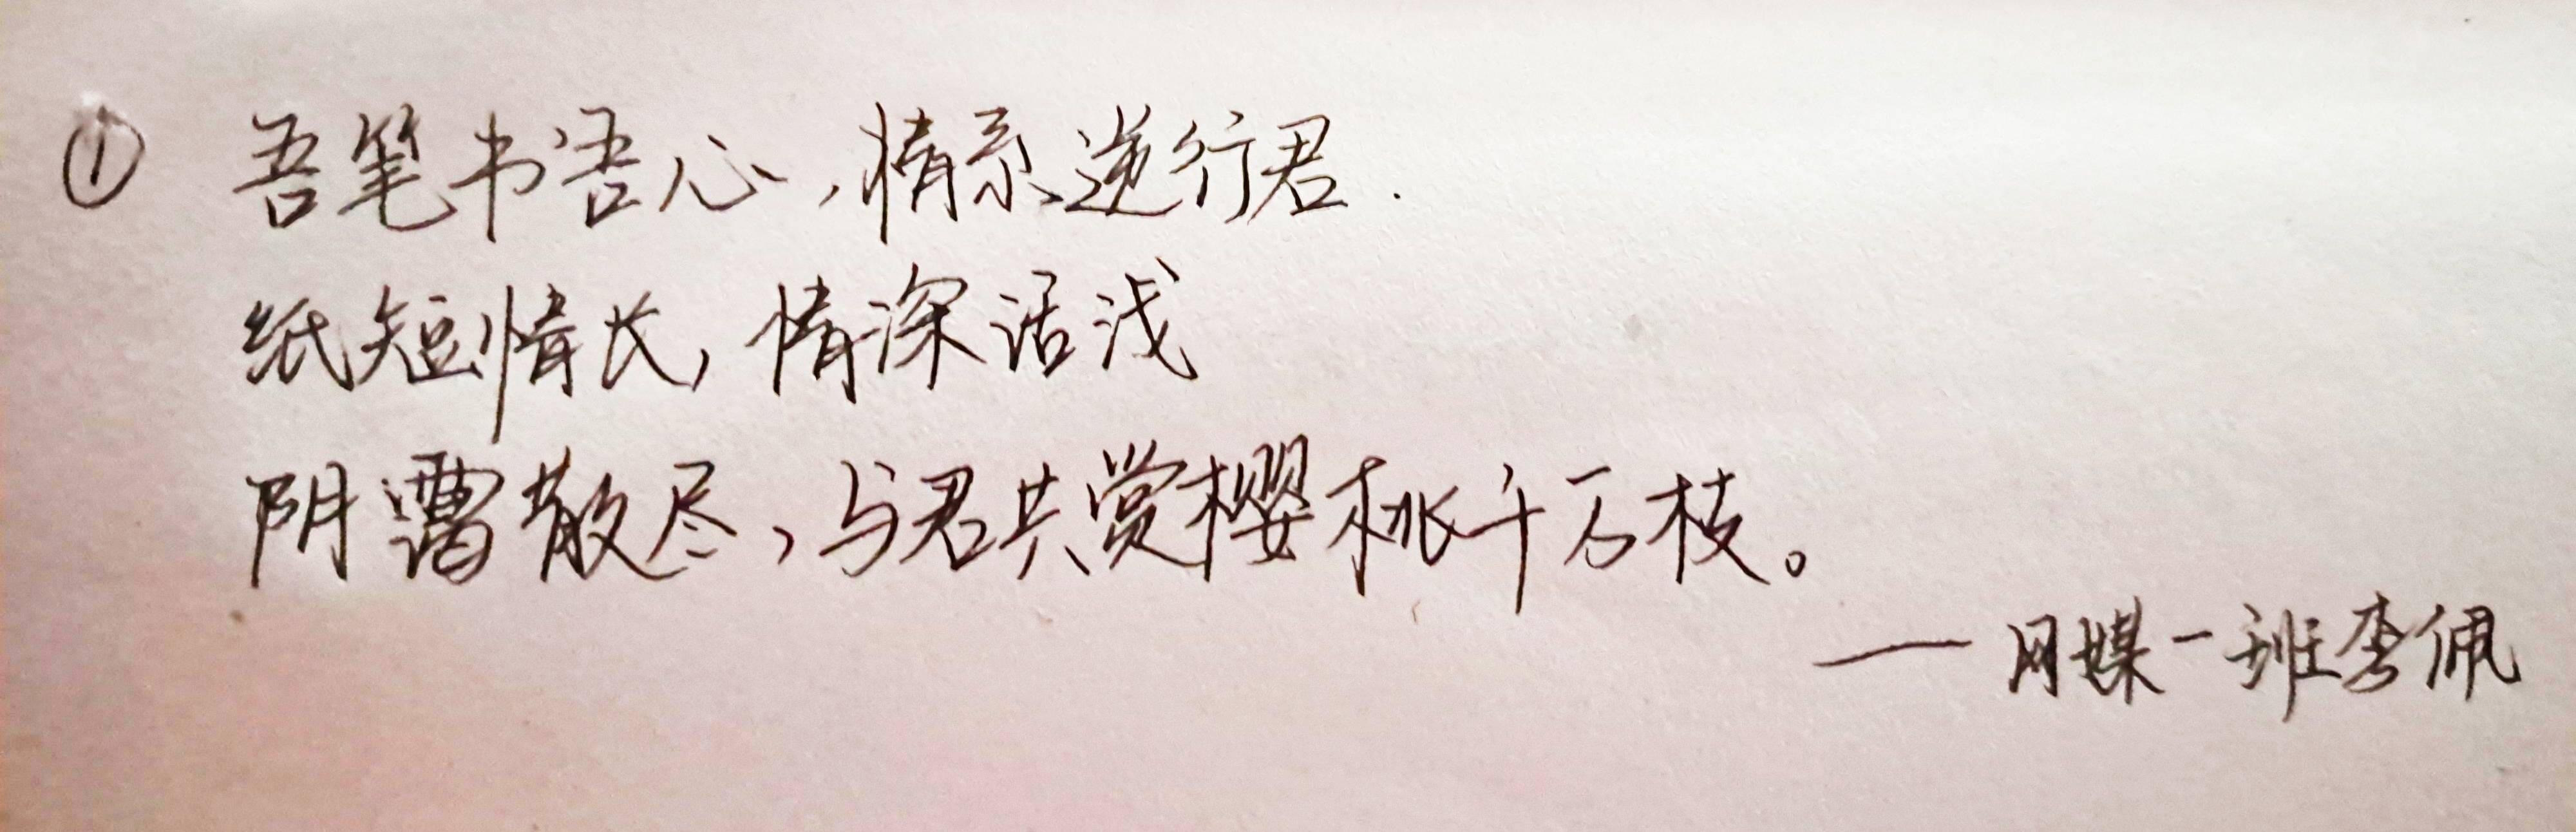 ① 吾笔书吾心，情系逆行君.
纸短情长，情深话浅
阴霭散尽，与君共赏樱桃千万枝。
——网媒一班李佩